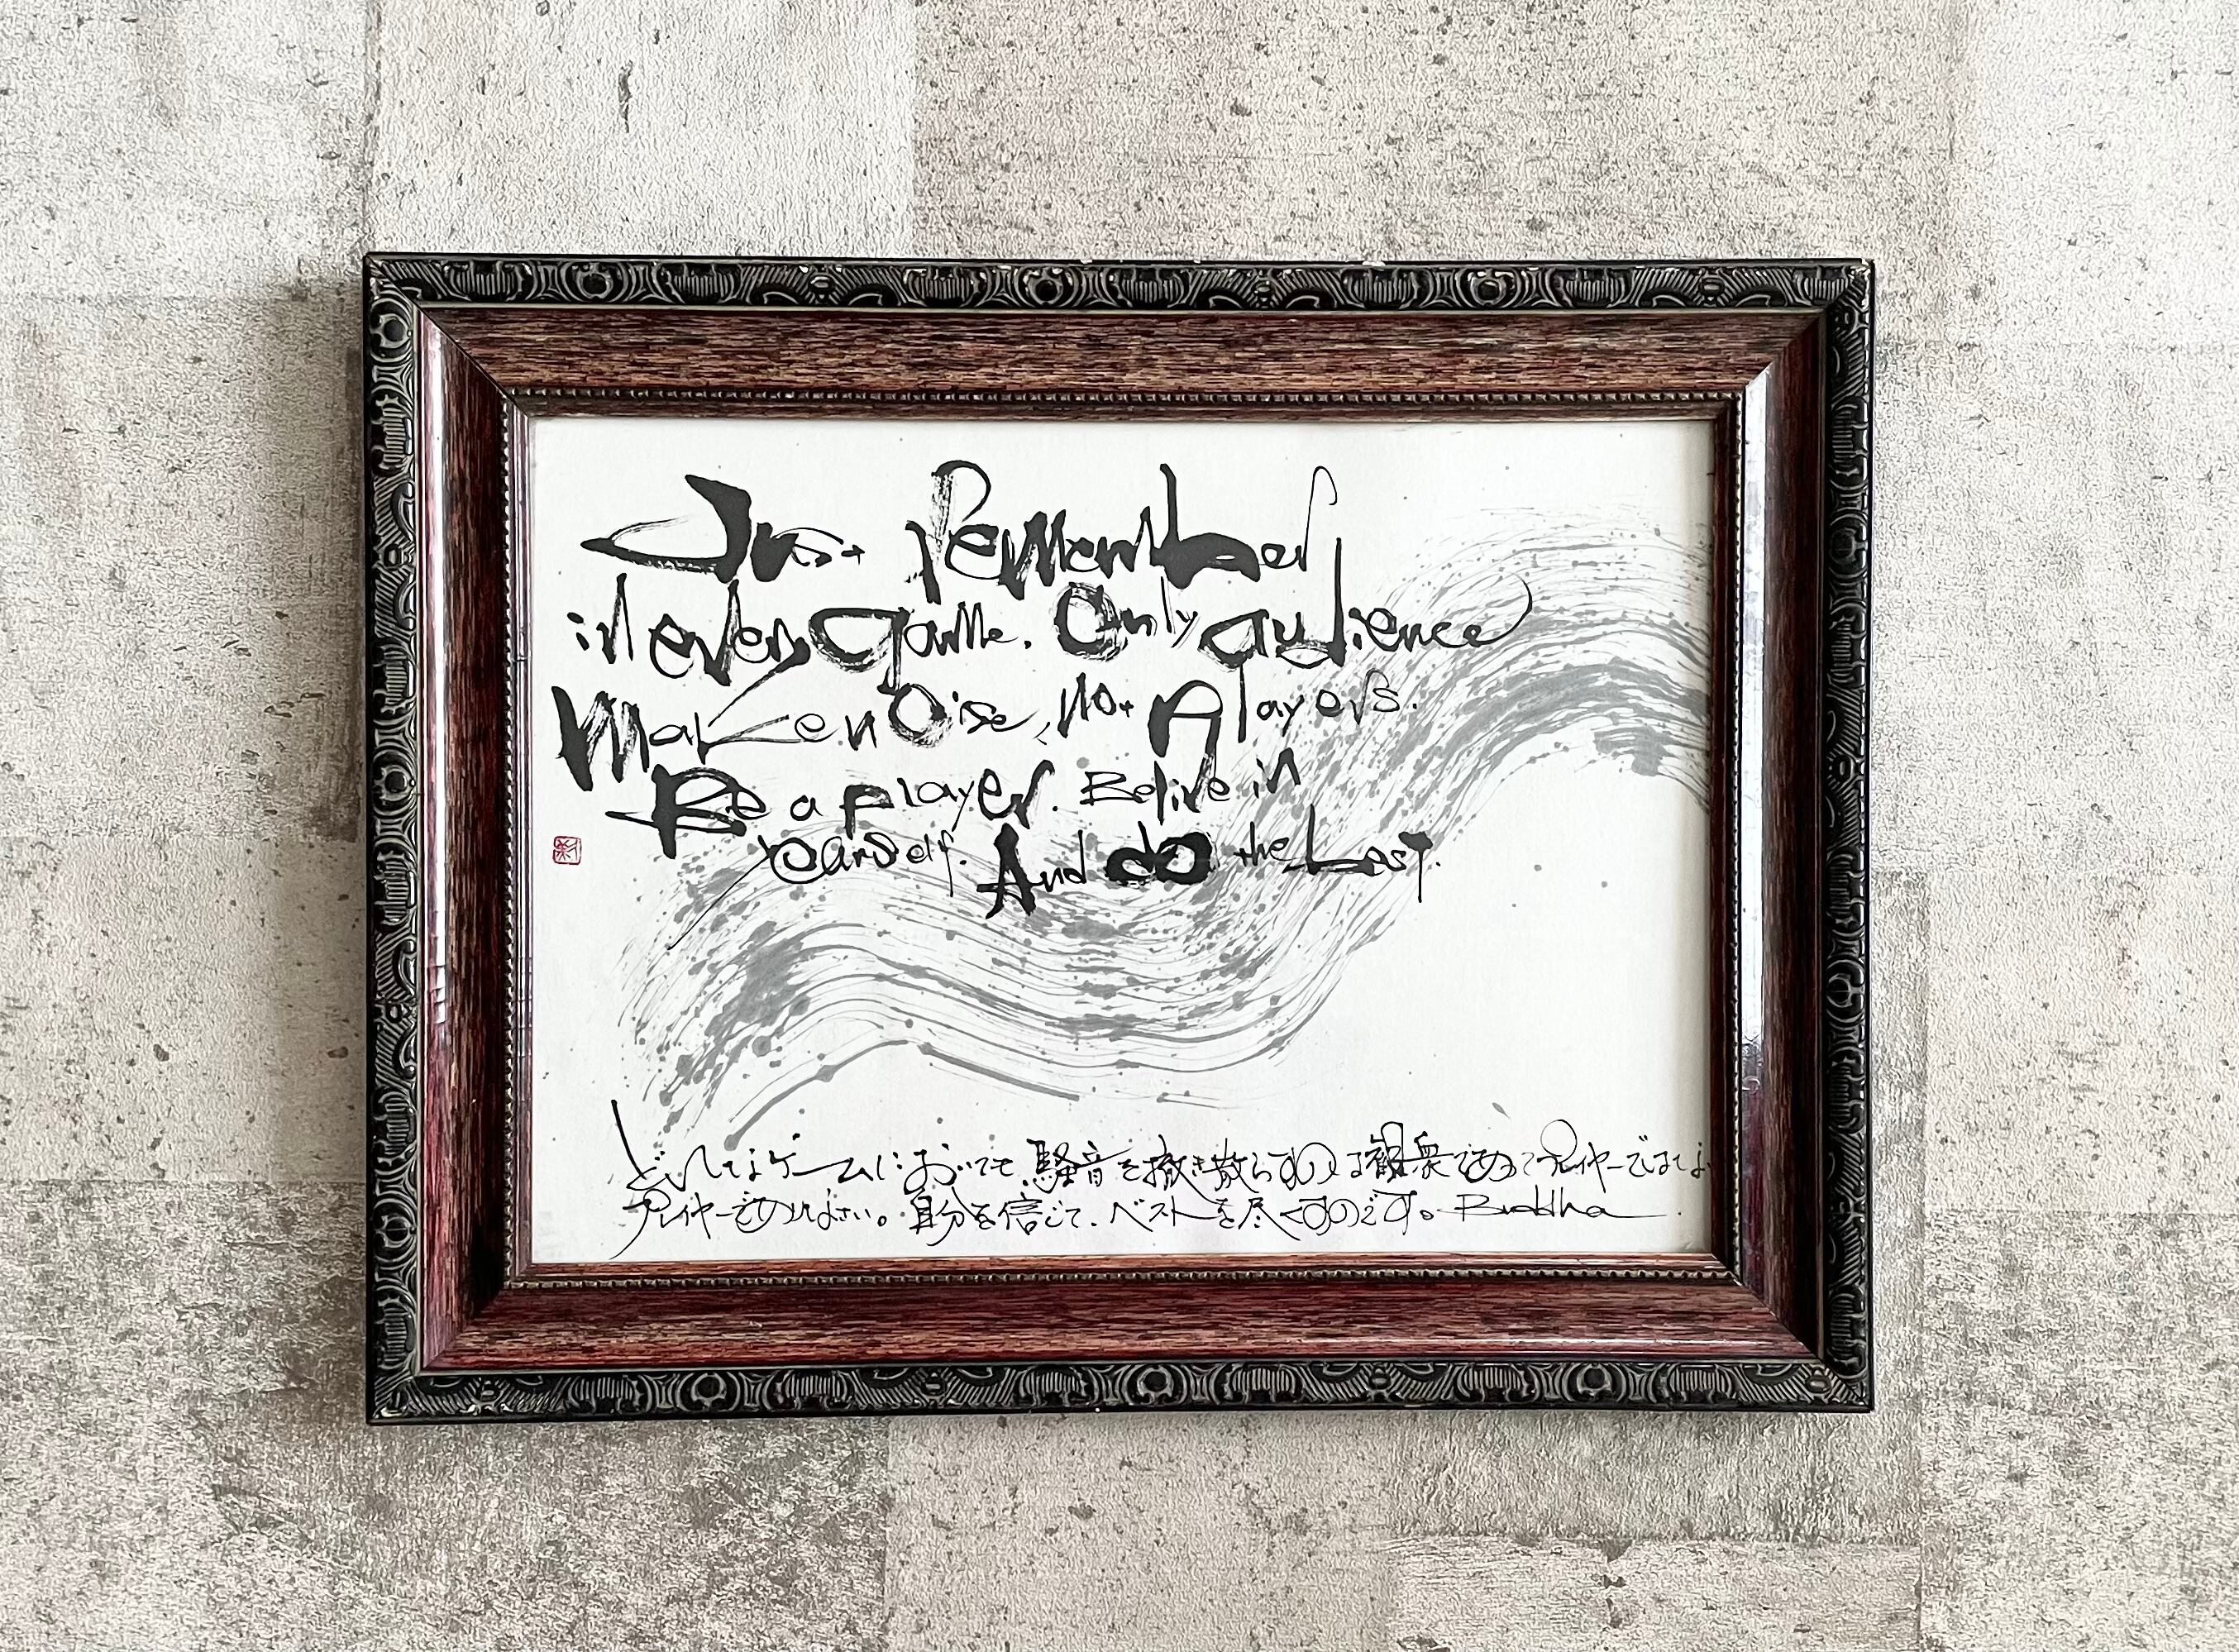 Just Remember
in every game. Only audience
make noise, not players.
Be a player. Belive in
yourself. And do the best.
どんなゲームにおいても、騒音を撒き散らすのは観衆であってプレイヤーではない
プレイヤーでありなさい。自分を信じて、ベストを尽くすのです。Buddha